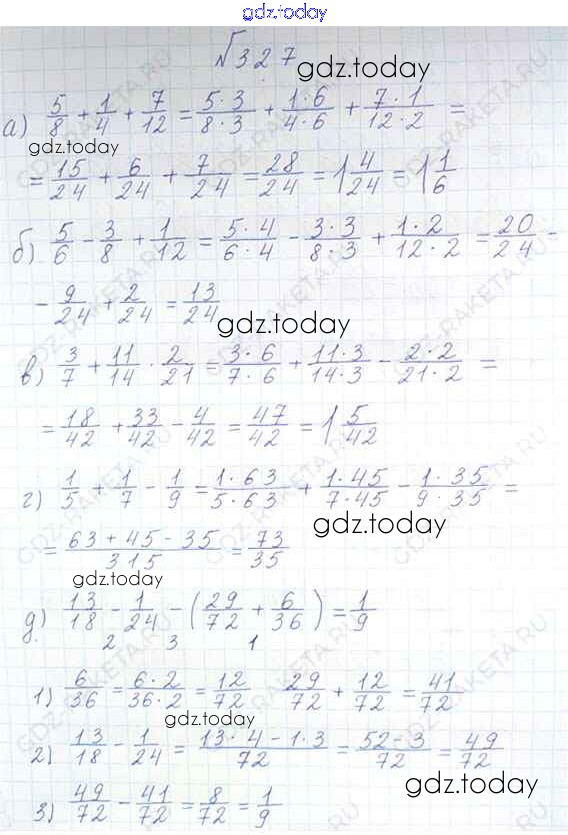 gdz.today
№327
gdz.today
а) 5/8 + 1/4 + 7/12 = 5·3/8·3 + 1·6/4·6 + 7·1/12·2 =
gdz.today
= 15/24 + 6/24 + 7/24 = 28/24 = 1 4/24 = 1 1/6
б) 5/6 - 3/8 + 1/12 = 5·4/6·4 - 3·3/8·3 + 1·2/12·2 = 20/24 -
- 9/24 + 2/24 = 13/24
gdz.today
в) 3/7 + 11/14 · 2/21 = 3·6/7·6 + 11·3/14·3 - 2·2/21·2 =
= 18/42 + 33/42 - 4/42 = 47/42 = 1 5/42
г) 1/5 + 1/7 - 1/9 = 1·63/5·63 + 1·45/7·45 - 1·35/9·35 =
gdz.today
= 63 + 45 - 35/315 = 73/35
gdz.today
д) 13/18 - 1/24 - (29/72 + 6/36) = 1/9
2 3 1
1) 6/36 = 6·2/36·2 = 12/72 29/72 + 12/72 = 41/72
gdz.today
2) 13/18 - 1/24 = 13·4-1·3/72 = 52-3/72 = 49/72
gdz.today
3) 49/72 - 41/72 = 8/72 = 1/9
GDZ-RAKETA.RU